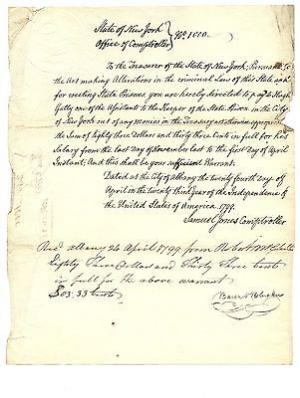 State of New York
Office of Comptroller } No. 1110.
To the Treasurer of the State of New York; Pursuant to
the Act making Alterations in the criminal Law of this State and
for erecting State Prisons you are hereby directed to pay to Hugh
Gatty one of the Assistants to the Keeper of the State Prison in the City
of New York out of any monies in the Treasury not otherwise appropriated
the Sum of eighty three Dollars and thirty three Cents in full for his
Salary from the last Day of November last to the first Day of April
Instant; And this shall be your sufficient Warrant.
Dated at the City of Albany the twenty fourth Day of
April in the twenty third Year of the Independence of
the United States of America. 1799.
Samuel Jones Comptroller
Recd Albany 24 April 1799 from
Eighty Three Dollars and Thirty Three Cents
in full for the above warrant
$83:33 Cents